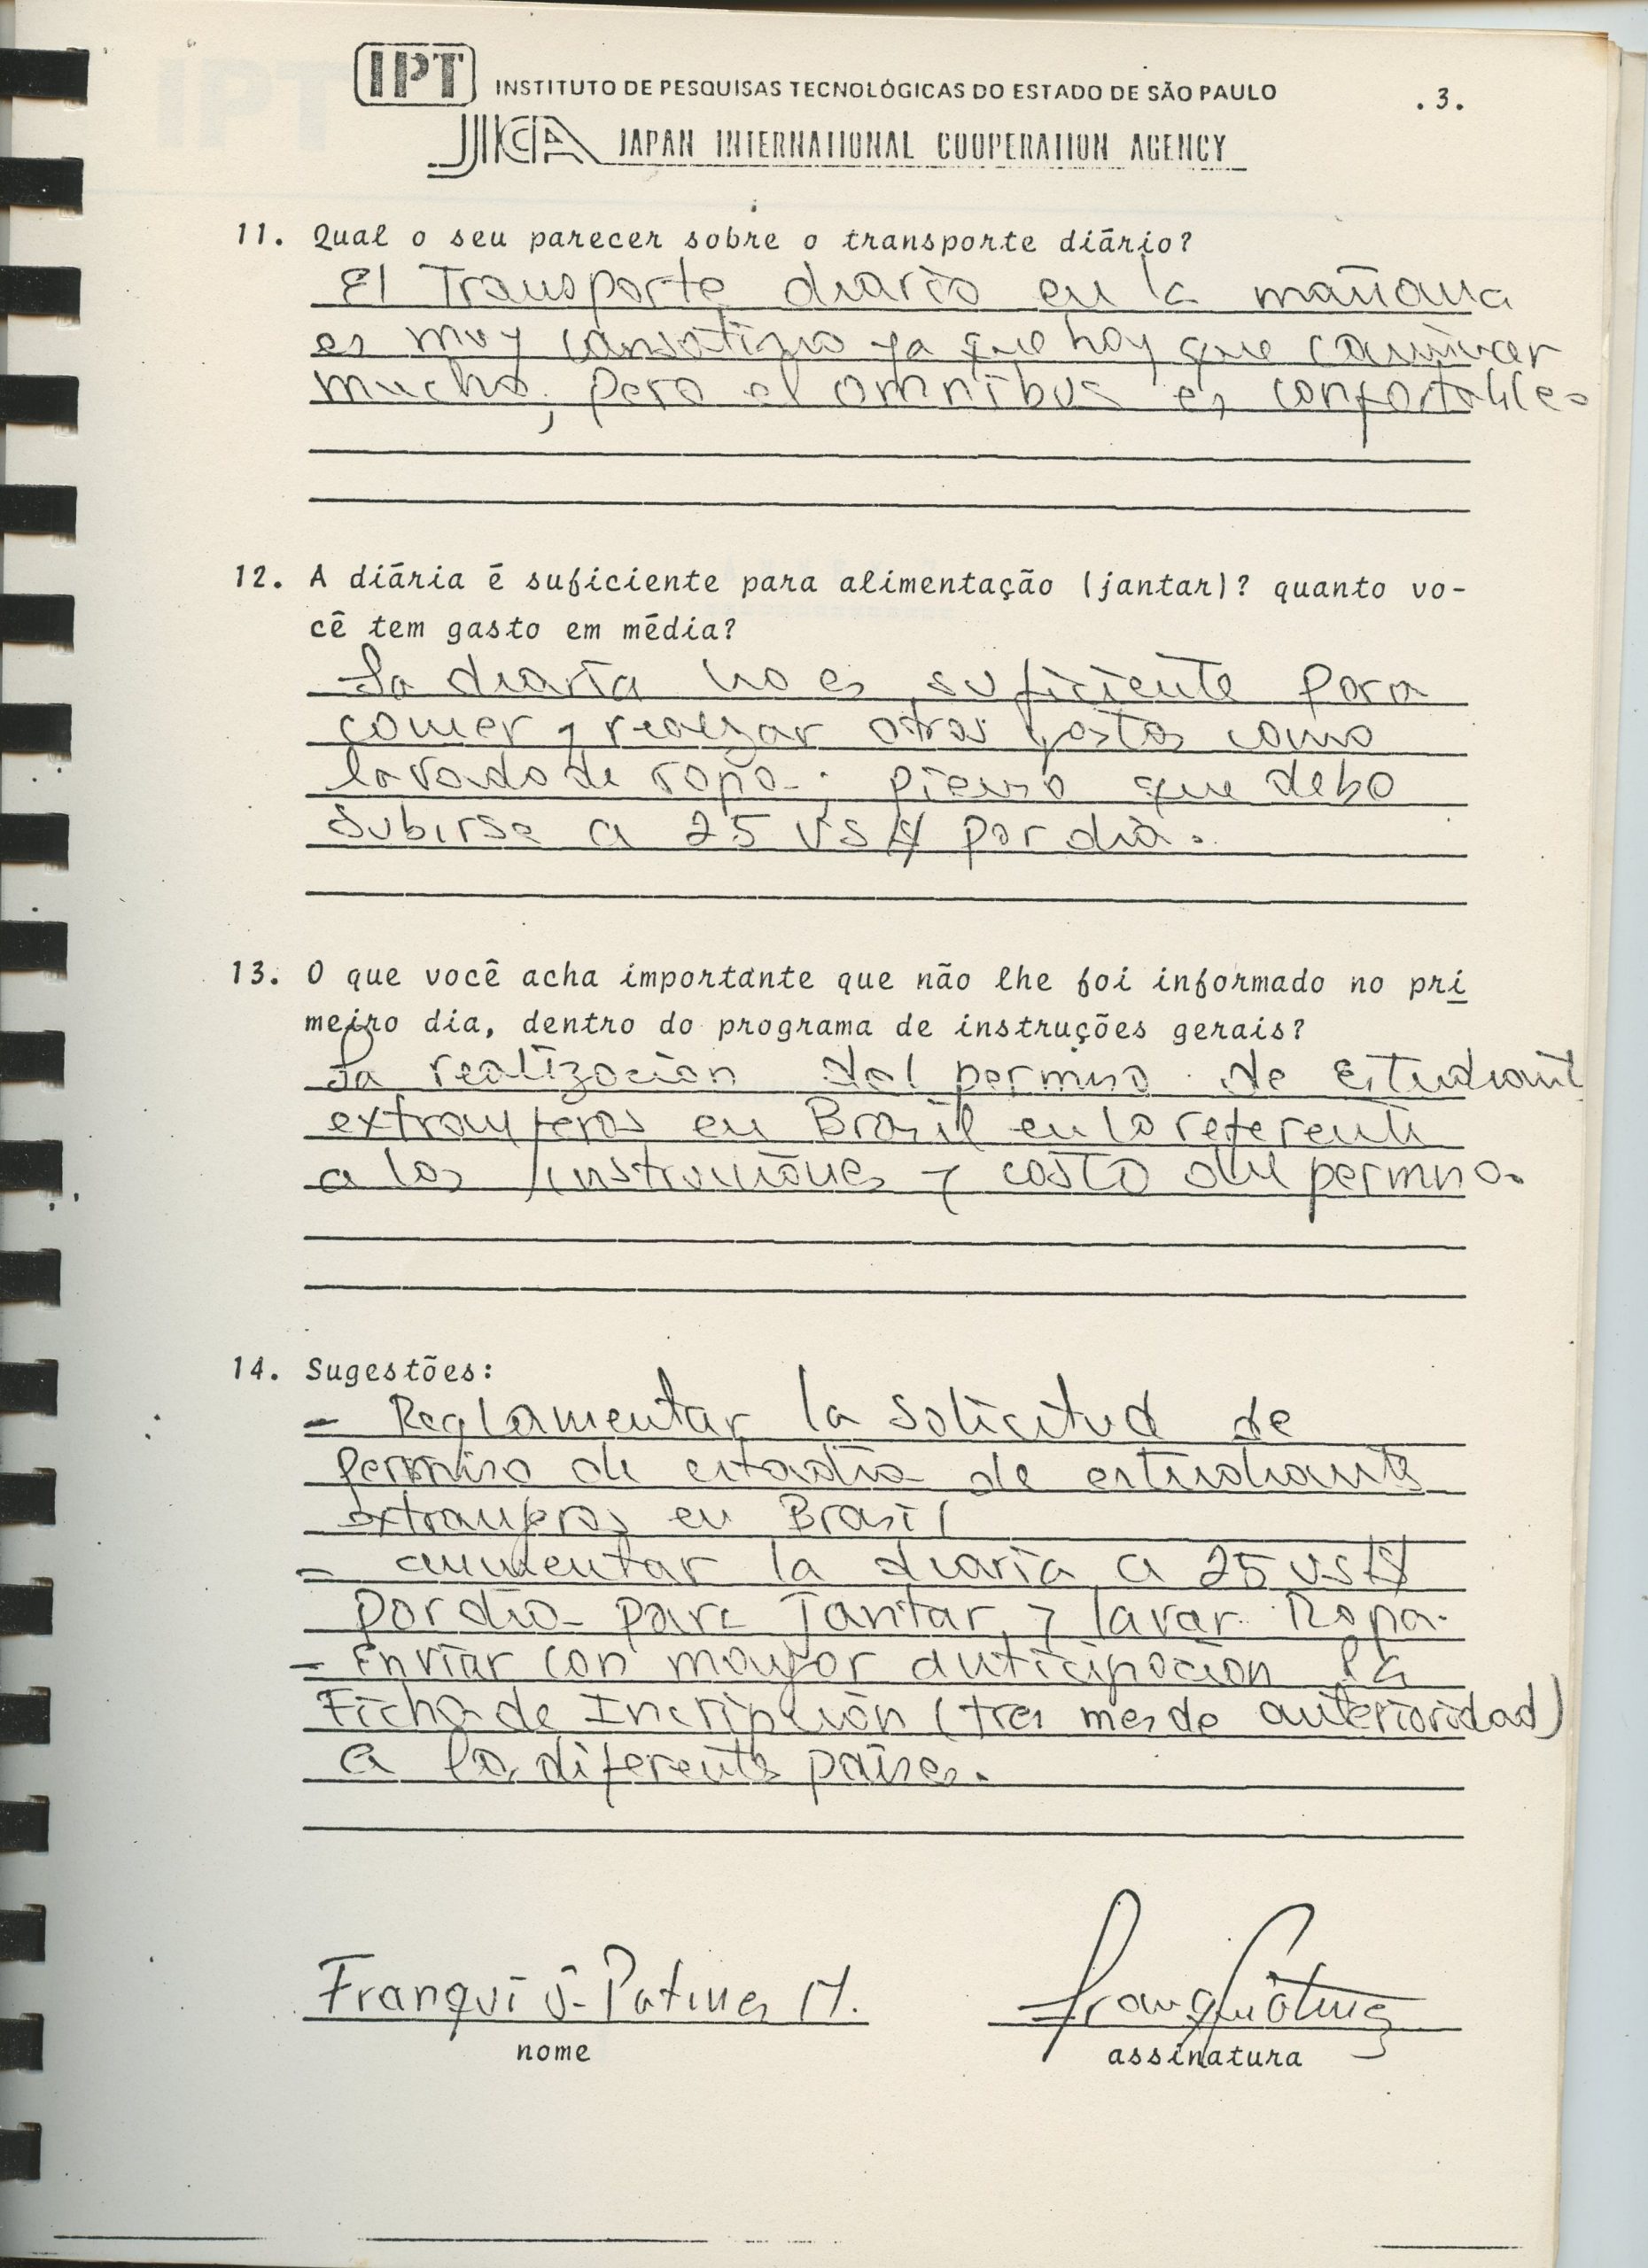 IPT INSTITUTO DE PESQUISAS TECNOLÓGICAS DO ESTADO DE SÃO PAULO .3.
JICA JAPAN INTERNATIONAL COOPERATION AGENCY
11. Qual o seu parecer sobre o transporte diário?
El Transporte diario en la mañana
es muy cansativo ya que hay que caminar
mucho, pero el omnibus es confortable.
12. A diária é suficiente para alimentação (jantar)? quanto vo-
cê tem gasto em média?
La diaria no es suficiente para
comer y realizar otros gastos como
lavado de ropa; pienso que debe
subirse a 25 US$ por dia.
13. O que você acha importante que não lhe foi informado no pri
meiro dia, dentro do programa de instruções gerais?
La realizacion del permiso de Estudiant
extranjeros en Brasil en lo referente
a las instrucciones y costo del permiso.
14. Sugestões:
- Reglamentar la solicitud de
permiso de estadia de estudiantes
extranjeros en Brasil
- aumentar la diaria a 25 US$
por dia para Jantar y lavar Ropa.
- Enviar con mayor anticipacion la
Ficha de Incripción (tres mes de anterioridad)
a los diferentes paises.
Franqui J. Patines M.
nome assinatura